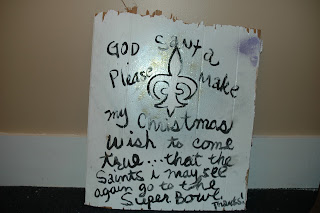 GOD Santa
Please Make
my Christmas
wish to come
true...that the
Saints i may see
again go to the
Super Bowl
Thanks!